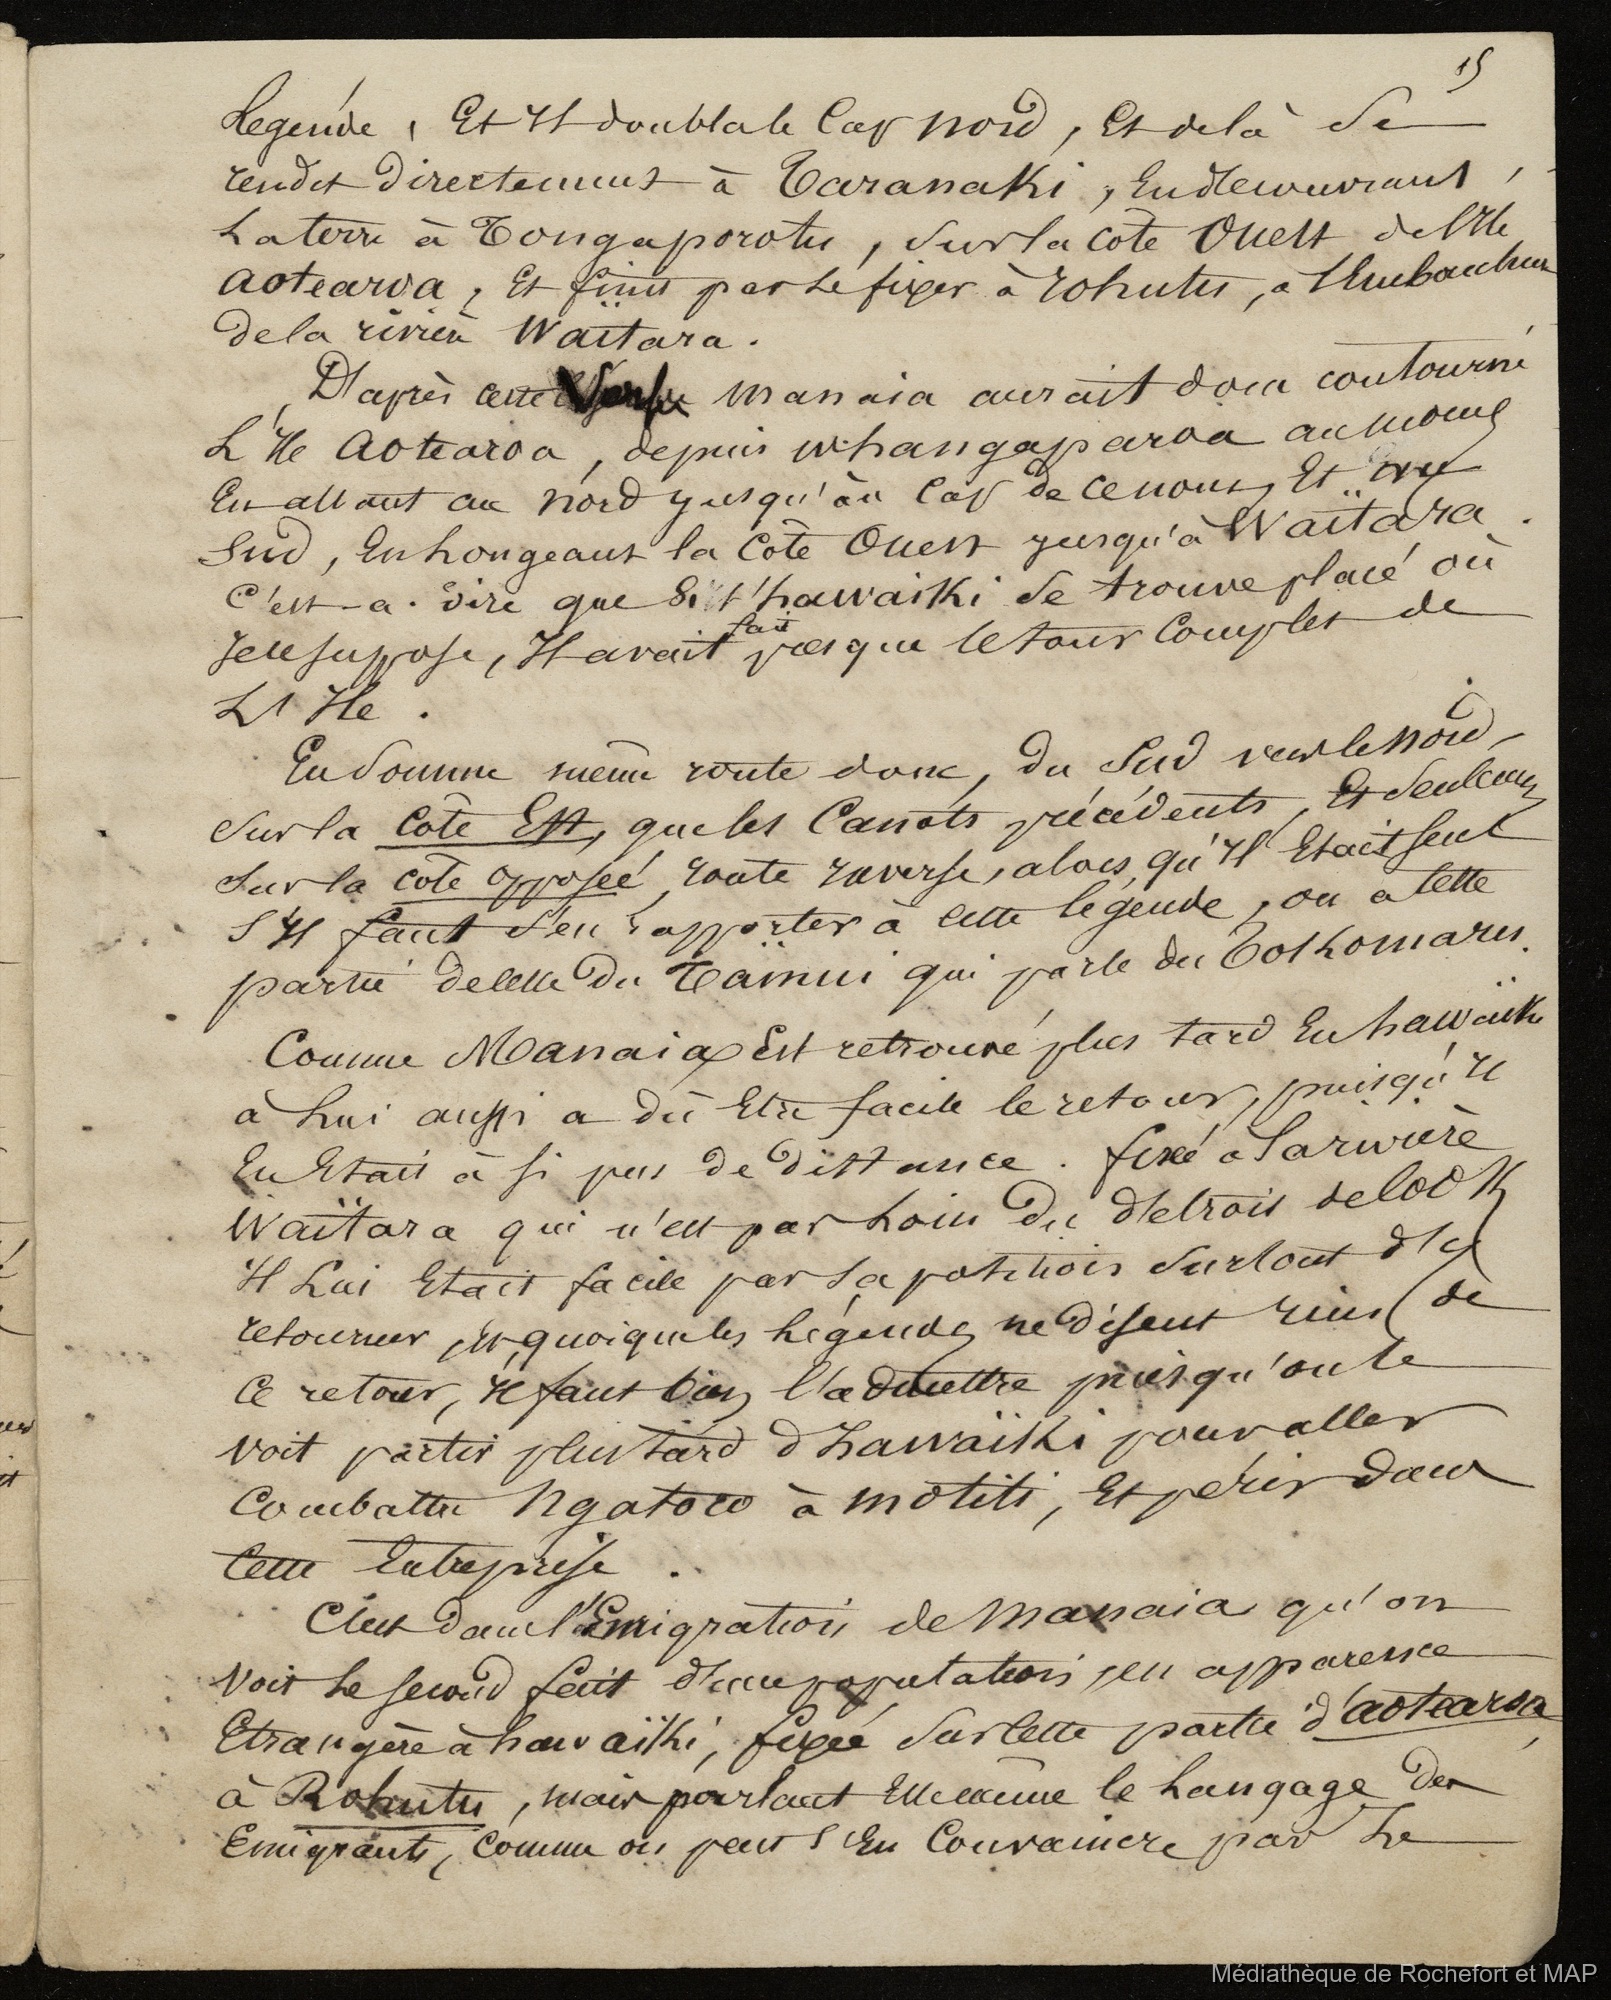 15
légende, Et Il doubla le Cap nord, Et de là se
rendit directement à Taranaki, En découvrant
La terre à Tongaporotu, sur la côte Ouest de l'Ile
aotearoa, Et finit par se fixer à rohutu, à l'Embouchure
de la rivière Waïtara.
D'après cette manaia aurait donc contourné
L'Ile aotearoa, depuis whangaparoa au moins
En allant au nord jusqu'au Cap de ce nom, Et au
Sud, En longeant la Côte Ouest jusqu'à Waïtara.
C'est-a-dire que Si l'hawaiki se trouve placé où
Je le suppose, Il avait fait presque le tour Complet de
L'Ile.
En somme même route donc, du Sud vers le nord,
sur la côte Est, que les Canots précédents, Et seulement
sur la côte opposée, route inverse, alors qu'Il Etait seul
s'Il faut s'en rapporter à cette légende, ou a cette
partie de celle du Taïnui qui parle du Tokomaru.
Comme Manaia Est retrouvé plus tard En hawaïki
à Lui aussi a dû Etre facile le retour, puisqu'Il
En Etait à si peu de distance. fixé à la rivière
Waïtara qui n'est pas Loin du détroit de Cook
Il Lui Etait facile par sa position surtout d'y
retourner, Et quoique les Légendes ne disent rien de
Ce retour, Il faut bien l'admettre puisqu'on le
voit partir plus tard d'hawaïki pour aller
Combattre Ngatoro à motiti, Et périr dans
Cette Entreprise.
C'est dans l'Emigration de manaia qu'on
Voit Le second fait d'une population, en apparence
Etrangère à hawaïki, fixée sur cette partie d'aotearoa,
à Rohutu, mais parlant Elle même le Langage des
Emigrants, Comme on peut s'En Convaincre par Le
Médiathèque de Rochefort et MAP